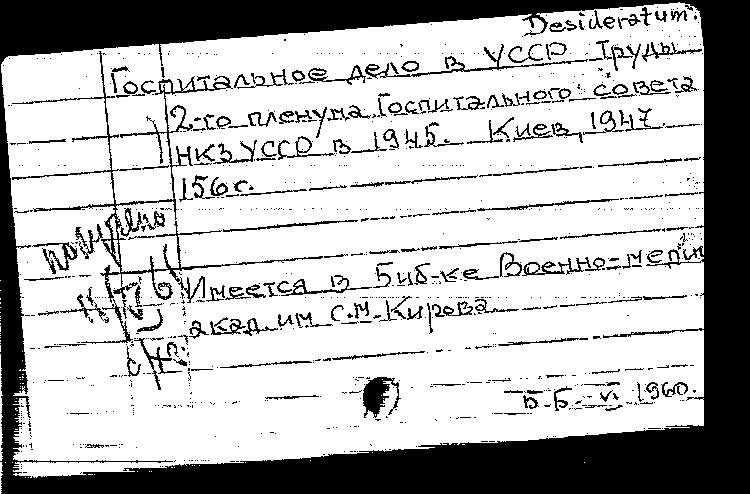 Desideratum.
Госпитальное дело в УССР Труды
2-го пленума Госпитального совета
НКЗ УССР в 1945. Киев, 1947.
156 с.
получено
Имеется в Биб-ке Военно-меди
акад. им С.М. Кирова.
Б.Б. VI 1960.